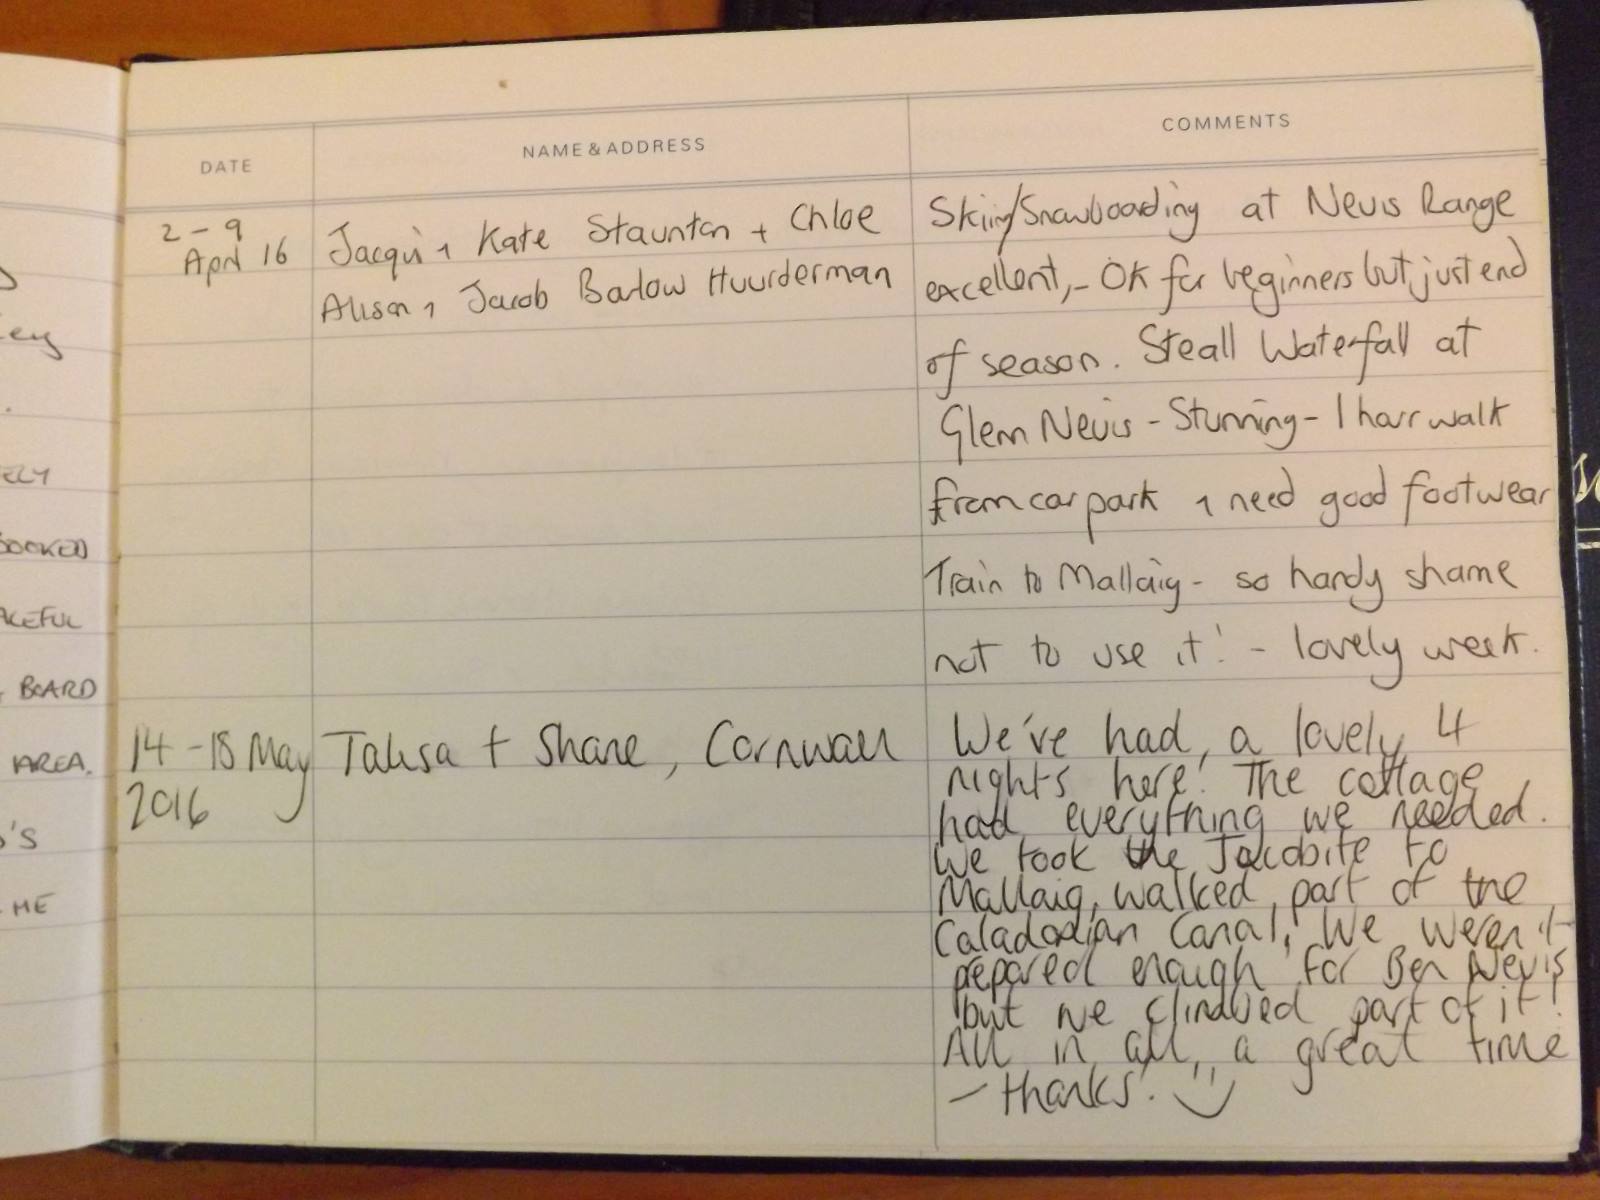 DATE
NAME & ADDRESS
COMMENTS
2 - 9
April 16
Jacqui + Kate Staunton + Chloe
Alison + Jacob Barlow Huurderman
Skiing/Snowboarding at Nevis Range
excellent, - OK for beginners but just end
of season. Steall Waterfall at
Glen Nevis - Stunning - 1 hour walk
from car park + need good footwear
Train to Mallaig - so handy shame
not to use it! - lovely week.
14 - 18 May
2016
Talisa + Shane, Cornwall
We've had a lovely 4
nights here! The cottage
had everything we needed.
We took the Jacobite to
Mallaig, walked part of the
Caladodian Canal! We weren't
prepared enough for Ben Nevis
but we climbed part of it!
All in all, a great time
- thanks! :)
ELY
BOOKED
BOARD
AREA.
ME